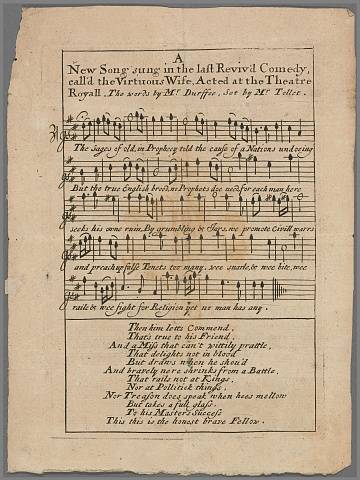 A
New Song sung in the last Reviv'd Comedy,
call'd the Virtuous Wife, Acted at the Theatre
Royall, The words by Mr Durffee, Set by Mr Tollet.
The Sages of old, in Prophecy told the cause of a Nations undoeing
But the true English breed, no Prophets doe need for each man here
seeks his owne ruin, By grumbling & Jars, we promote Civill warrs
and preach up false Tenets too many, wee snarle, & wee bite, wee
raile & wee fight for Religion yet no man has any.
Then him letts Commend,
That's true to his Friend,
And a Miss that can't vittily prattle,
That delights not in blood
But draws when he shou'd
And bravely nere shrinks from a Battle.
That rails not at Kings,
Nor at Pollitick things,
Nor Treason does speak when hees mellow
But takes a full glass.
To his Masters Success
This this is the honest brave Fellow.